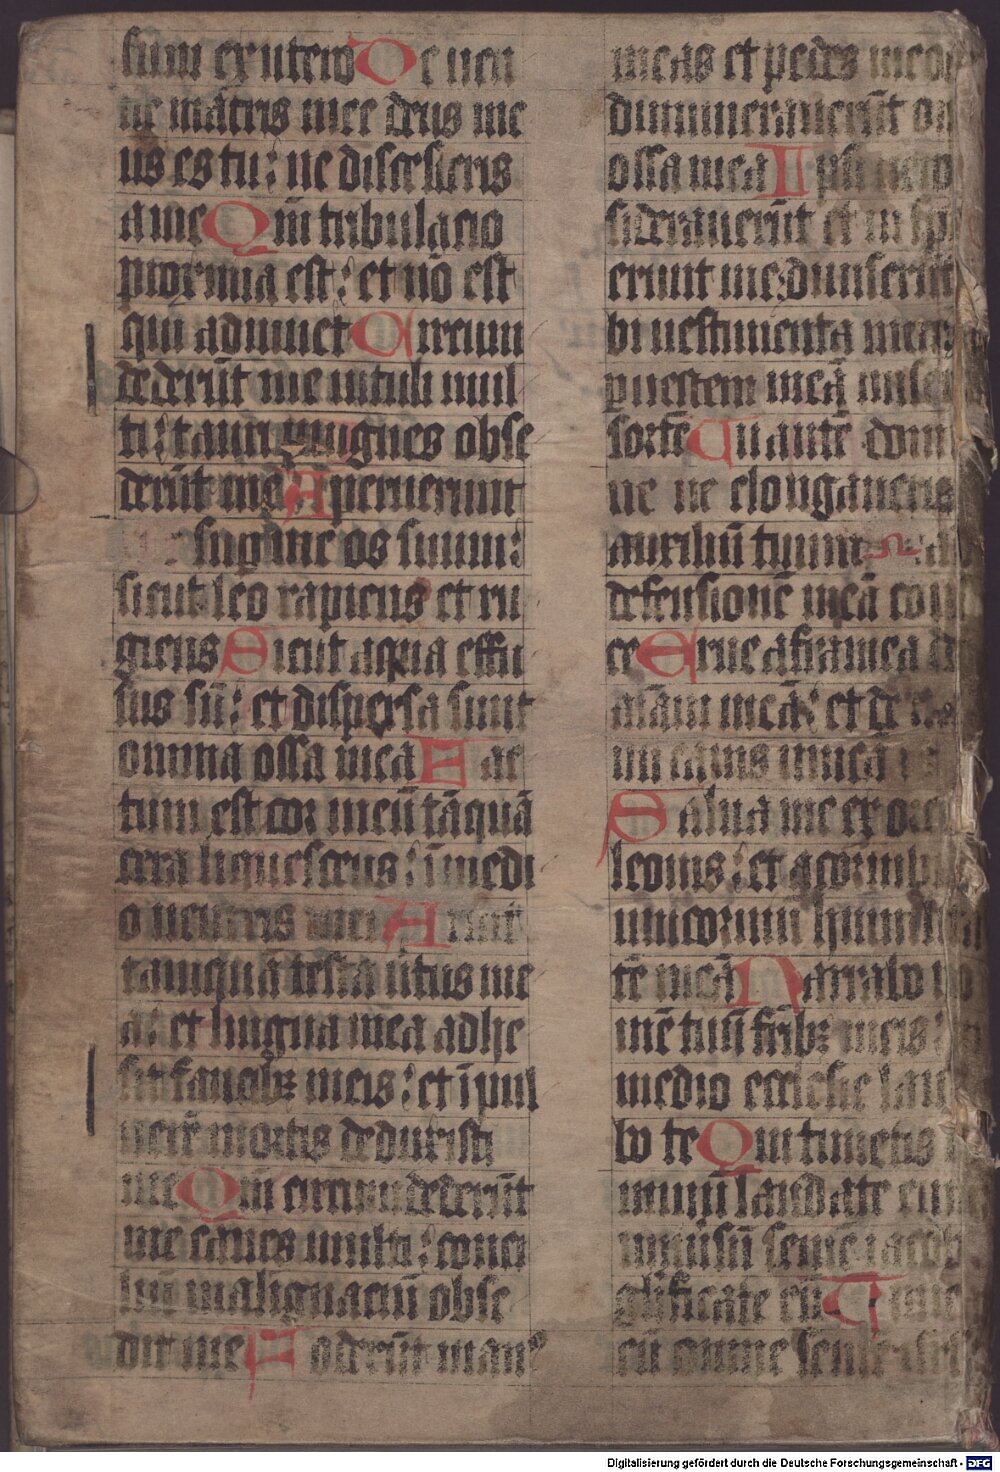 sum ex utero De uen
tre matris mee deus me
us es tu: ne discesseris
a me Qm̄ tribulacio
proxima est: et nō est
qui adiuuet Circum
dederūt me uituli mul
ti: tauri pingues obse
derūt me Aperuerunt
super me os suum:
sicut leo rapiens et ru
giens Sicut aqua effu
sus sū: et dispersa sunt
omnia ossa mea Fac
tum est cor meū tāquā
cera liquescens: ī medi
o uentris mei Aruit
tamquā testa uirtus me
a: et lingua mea adhe
sit faucibꝫ meis: et ī pul
uerē mortis deduxisti
me Qm̄ circumdederūt
me canes multi: conci
liū malignaciū obse
dit me Foderūt manꝰ
meas et pedes meos
dinumerauerūt om
ossa mea Ipsi uero
siderauerūt et insp
erunt me: diuiserūt
bi uestimenta mea:
p uestem meā miser
sortē Tu autē domi
ne ne elongaueris
auxiliū tuum: ad
defensionē meā con
ce Erue a framea d
aīam meā: et de
nu canis unicā
Salua me ex ore
leonis: et a cornib
unicornium humili
tē meā Narrabo no
mē tuū frībꝫ meis:
medio ecclesie lau
bo te Qui timetis
minū laudate eum
uniuersū semē iacob
glīficate eū Time
eū omne semē isr
Digitalisierung gefördert durch die Deutsche Forschungsgemeinschaft - DFG